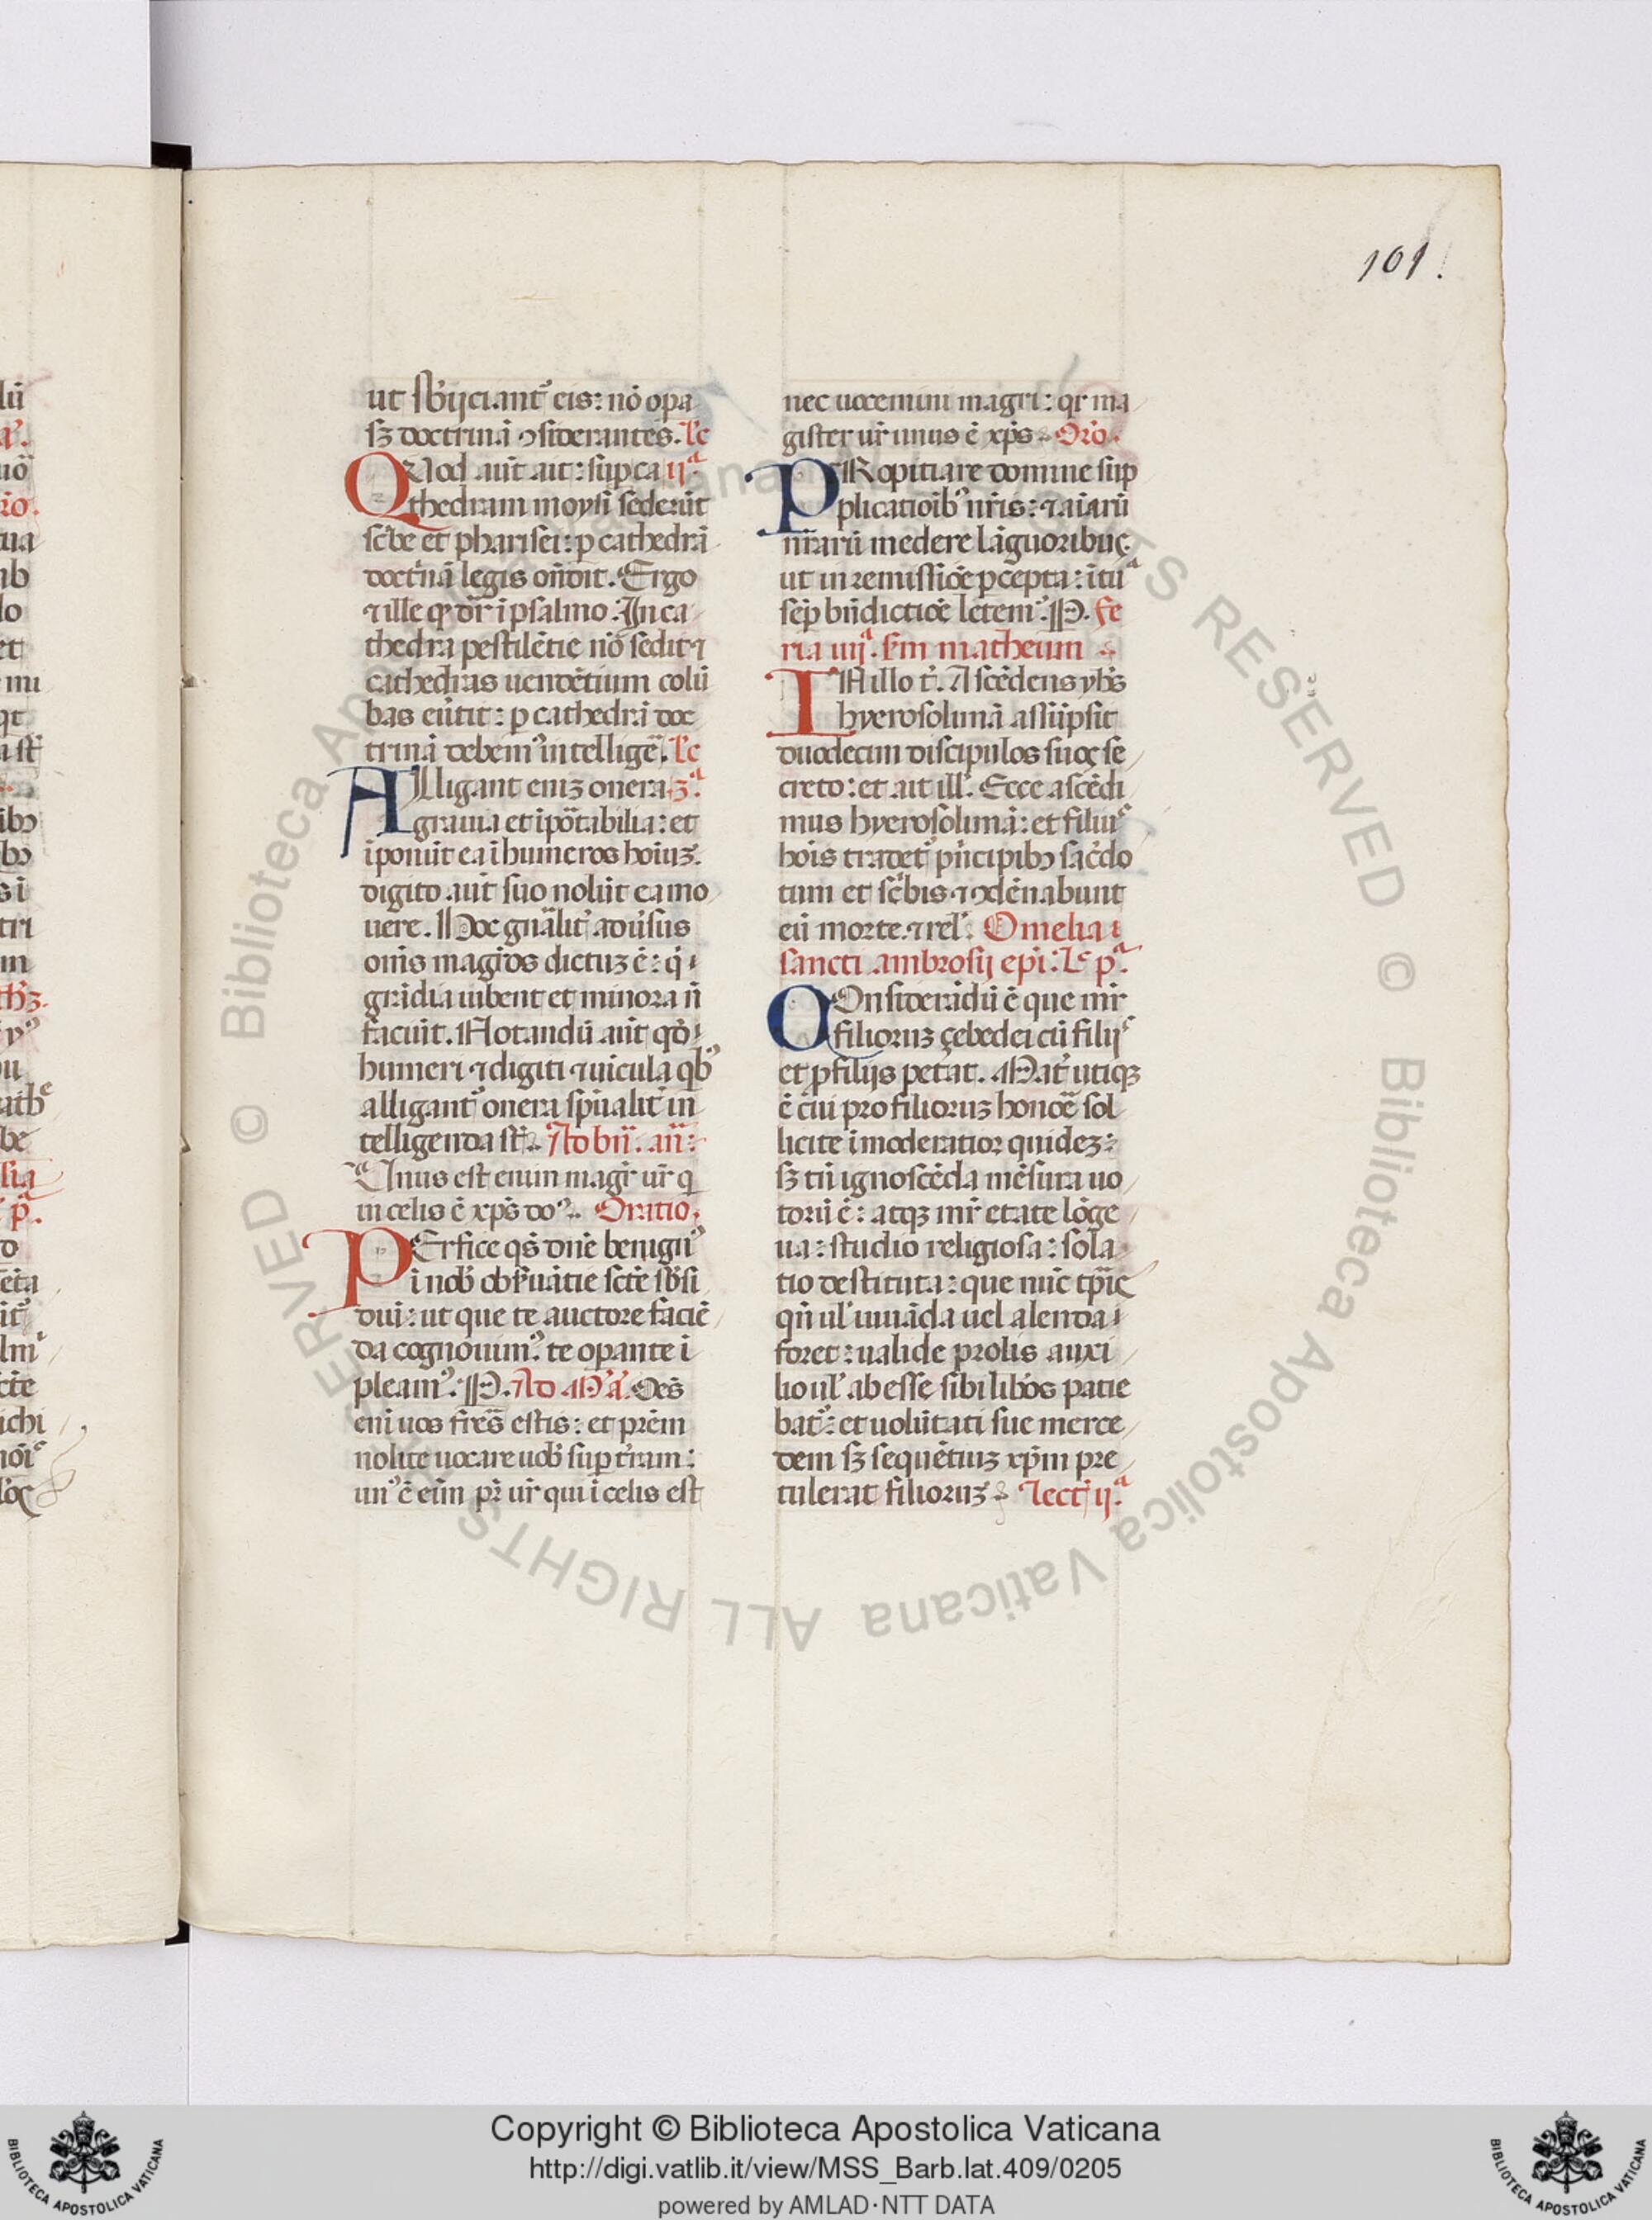 101.
ut sb̄ijciant᷒ eis: nō opa
sꝫ doctrinā ꝯsiderantes. Lc̄
QVod aūt ait: sup ca ijᵃ
thedram moysi sederūt
sc̄be et pharisei: p cathedrā
doct'nā legis oñdit. Ergo
⁊ ille qͥ dr̄ i psalmo. In ca
thedra pestilētie nō sedit ⁊
cathedras uendētium colū
bas eūtit: p cathedrā doc
trinā debem᷒ intelligē. Lc̄
ALligant eniꝫ onera 3ᵃ.
grauia et ipōtabilia: et
iponūt ea i humeros hoiuꝫ.
digito aūt suo nolūt ea mo
uere. Hoc gn̄alit᷒ adūsus
om̄s magr̄os dictuꝫ ē: qͥ
grādia iubent et minora ñ
faciūt. Notandū aūt qͦ
humeri ⁊ digiti ⁊ uīcula qb᷒
alligant᷒ onera sp̄ualit᷒ in
telligenda st̄. Ad bñ. añ:
Vnus est enim magr̄ ur̄ q
in celis ē xp̄s do᷒. Oratio.
PErfice qs̄ dn̄e benign᷒
i nob̄ obs̄uātie sc̄te sb̄si
dui: ut que te auctore faciē
da cognouim᷒. te opante i
pleam᷒. P. Ad Mᵃ. Oēs
eni uos fr̄es estis: et pr̄em
nolite uocare uob̄ sup t'ram:
un᷒ ē eīm pr̄ ur̄ qui i celis est
nec uocemini magri: qr ma
gister ur̄ unus ē xp̄s. Or̄o.
PRopitiare domine sup
plicatioib᷒ nr̄is: ⁊ aiarū
nr̄arū medere lāguoribuc
ut in remissiōe pcepta: i tuᵃ
sēp bn̄dictiōe letem᷒. P. Fe
ria iiijᵃ. s̄m matheum
IN illo t̄. Ascēdens yhs̄
hyerosolimā assūpsit
duodecim discipulos suoc se
creto: et ait ill'. Ecce ascēdi
mus hyerosolimā: et filiuˢ
hois tradet᷒ p'ncipibꝰ sac̄do
tum et sc̄bis. ⁊ ꝯdēnabunt
eū morte. ⁊ rel'. Omelia
sancti ambrosij epi. Lc̄ pᵃ.
COnsiderādū ē que mr̄
filioruꝫ çebedei cū filijˢ
et p filijs petat. Mat᷒ utiqꝫ
ē cui pro filioruꝫ honoē sol
licite imoderatior quideꝫ:
sꝫ tn̄ ignoscēda mēsura uo
torū ē: atqꝫ mr̄ etate lōge
ua: studio religiosa: sola
tio destituta: que nūc tp̄ic
qn̄ ul' iuuāda uel alenda
foret: ualide prolis auxi
lio ul' abesse sibi libōs patie
bat᷒: et uolūtati sue merce
dem sꝫ sequētiuꝫ xpm pre
tulerat filioruꝫ. Lect' ijᵃ.
© Biblioteca Apostolica Vaticana ALL RIGHTS RESERVED © Biblioteca Apostolica Vaticana ALL RIGHTS RESERVED
BIBLIOTECA APOSTOLICA VATICANA
Copyright © Biblioteca Apostolica Vaticana
http://digi.vatlib.it/view/MSS_Barb.lat.409/0205
powered by AMLAD·NTT DATA
BIBLIOTECA APOSTOLICA VATICANA